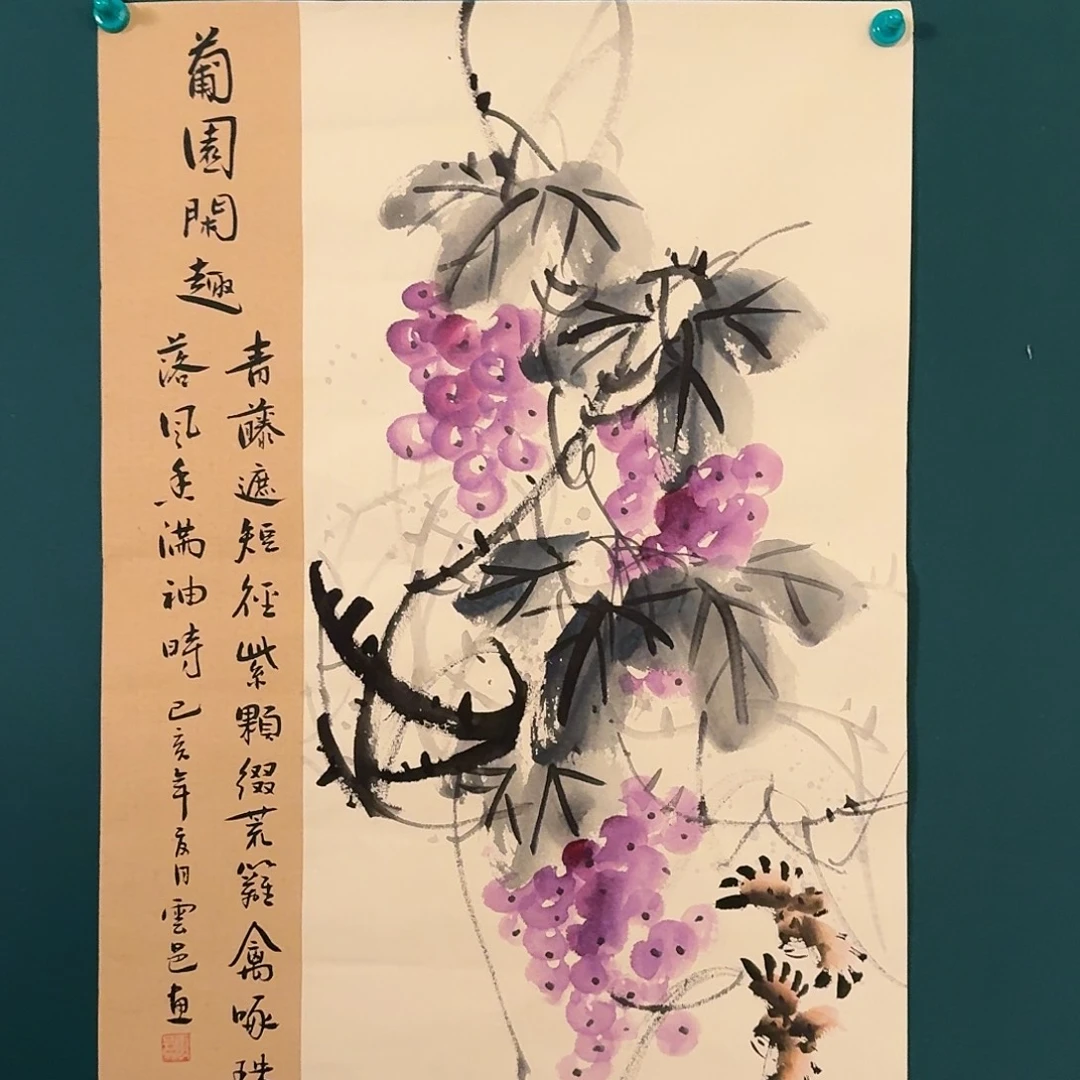 葡園閑趣
青藤遮短徑紫顆綴荒籬禽啄珠
落風香滿袖時
己亥年亥月雲邑画